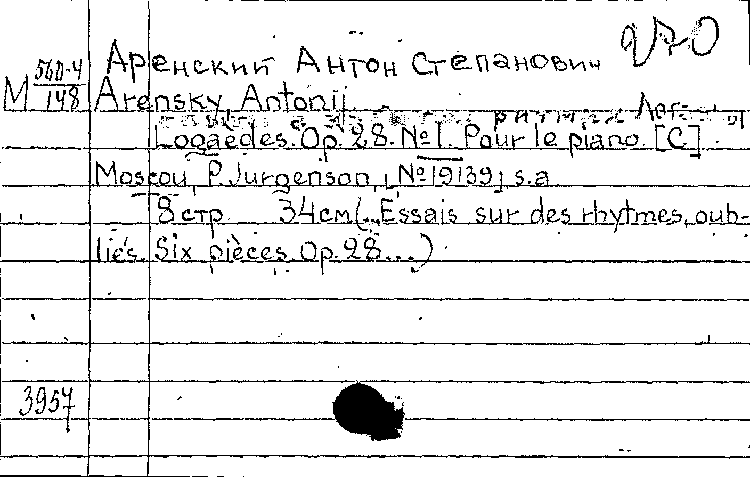 270
Аренский Антон Степанович
М 560-4/148 Arensky, Antonij.
Logaèdes. Op. 28. №1. Pour le piano. [C]
Moscou, P. Jurgenson, [№19139] s.a
8 стр 34 см (... Essais sur des rhytmes oub-
liés. Six pièces. Op. 28...)
3957